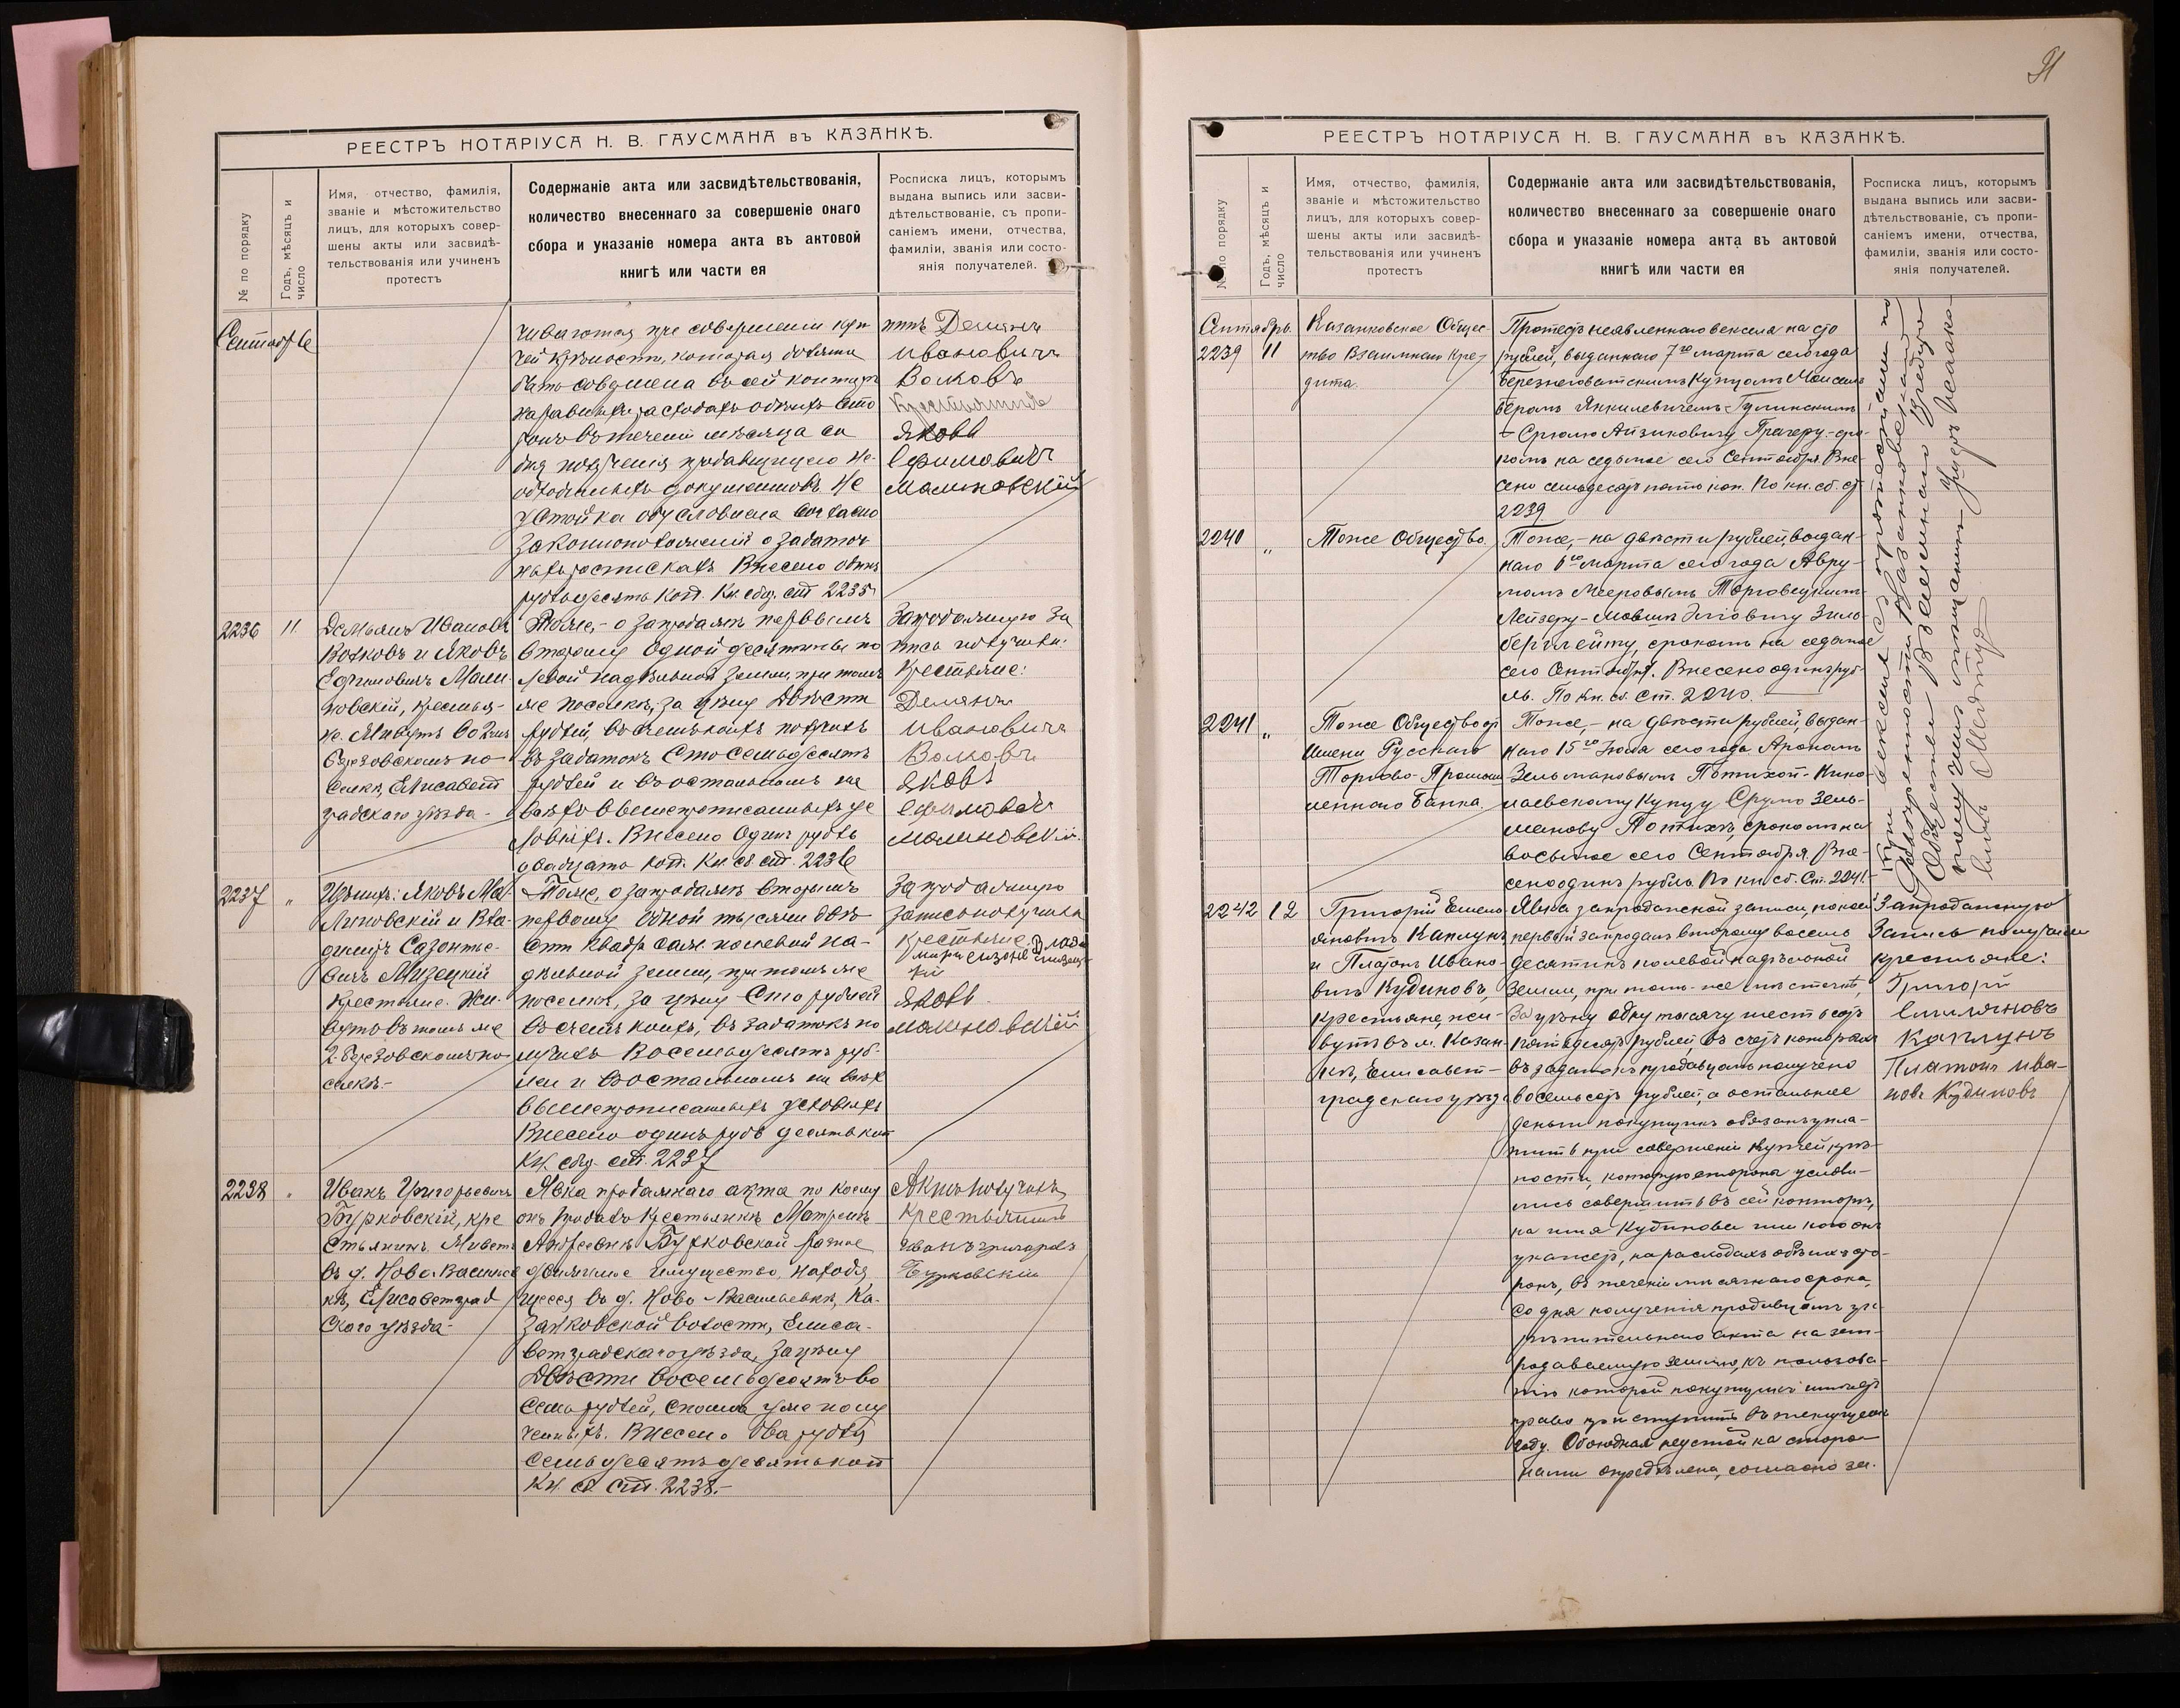 РЕЕСТРЪ НОТАРІУСА Н. В. ГАУСМАНА въ КАЗАНКѢ.
№ по порядку
Годъ, мѣсяцъ и
число
Имя, отчество, фамилія,
званіе и мѣстожительство
лицъ, для которыхъ совер-
шены акты или засвидѣ-
тельствованія или учиненъ
протестъ
Содержаніе акта или засвидѣтельствованія,
количество внесеннаго за совершеніе онаго
сбора и указаніе номера акта въ актовой
книгѣ или части ея
Росписка лицъ, которымъ
выдана выпись или засви-
дѣтельствованіе, съ пропи-
саніемъ имени, отчества,
фамиліи, званія или состо-
янія получателей.
Сентябрь
чиваются при совершеніи куп
чей крѣпости, которая должна
быть совершена въ сей конторѣ
на равныхъ расходахъ обѣихъ сто
ронъ въ теченіи мѣсяца со
дня полученія продавщицею не-
обходимыхъ документовъ. Не
устойка обусловлена согласно
законоположеній о задаточ
ныхъ роспискахъ. Внесено одинъ
рубль десять коп. Кн. сбор. ст. 2235
Демянъ
Ивановичъ
Волковъ
Крестьянинъ
Яковъ
Ефимовичъ
Малиновскій
2236 11.
Демьянъ Ивановъ
Волковъ и Яковъ
Ефимовичъ Мали-
новскій, крестья-
не. Живутъ во 2мъ
Березовскомъ по-
селкѣ, Елисавет
градскаго уѣзда.
Тоже, - о запродажѣ первымъ
второму одной десятины по
левой надѣльной земли, при томъ
же поселкѣ, за цѣну Двѣсти
рублей, въ счетъ коихъ получилъ
въ задатокъ Сто семьдесятъ
рублей и въ остальномъ на
всѣхъ вышеописанныхъ ус
ловіяхъ. Внесено Одинъ рубль
двадцать коп. Кн. сб. ст. 2236
Запродажную за
пись получили:
Крестьяне:
Демянъ
Ивановичъ
Волковъ
Яковъ
Ефимовичъ
Малиновскій.
2237 "
Яковъ Ма-
линовскій и Вла-
диміръ Сазонтье-
вичъ Мизецкій
крестьяне. Жи-
вутъ въ томъ же
2. Березовскомъ по-
селкѣ.-
Тоже, о запродажѣ вторымъ
первому одной тысячи двѣ-
сти квадр. саж. полевой на-
дѣльной земли, при томъ же
поселкѣ, за цѣну Сто рублей
въ счетъ коихъ, въ задатокъ по
лучилъ Восемьдесятъ руб-
лей и въ остальномъ на всѣхъ
вышеписанныхъ условіяхъ
Внесено одинъ рубль десять коп
Кн. сбор. ст. 2237
Запродажную
запись получили
Крестьяне: Влади
міръ
Яковъ
Малиновскій
2238 "
Иванъ Григорьевичъ
Бурковскій, кре
стьянинъ. Живетъ
въ д. Ново-Васильев
кѣ, Елисаветград
скаго уѣзда.-
Явка продажнаго акта по коему
онъ продалъ крестьянкѣ Матренѣ
Андреевнѣ Бурковской разное
движимое имущество, находя
щееся въ д. Ново-Васильевкѣ, Ка-
занковской волости, Елиса-
ветградскаго уѣзда, за цѣну
Двѣсти восемьдесятъ во
семь рублей, сполна уже полу
ченныхъ. Внесено два рубля
семьдесятъ девять коп
Кн. сб. ст. 2238.-
Актъ получилъ
Крестьянинъ
Иванъ Григоревъ
Бурковскій
91
РЕЕСТРЪ НОТАРІУСА Н. В. ГАУСМАНА въ КАЗАНКѢ.
№ по порядку
Годъ, мѣсяцъ и
число
Имя, отчество, фамилія,
званіе и мѣстожительство
лицъ, для которыхъ совер-
шены акты или засвидѣ-
тельствованія или учиненъ
протестъ
Содержаніе акта или засвидѣтельствованія,
количество внесеннаго за совершеніе онаго
сбора и указаніе номера акта въ актовой
книгѣ или части ея
Росписка лицъ, которымъ
выдана выпись или засви-
дѣтельствованіе, съ пропи-
саніемъ имени, отчества,
фамиліи, званія или состо-
янія получателей.
Сентябрь.
2239 11
Казанковское Общес-
тво Взаимнаго Кре-
дита.
Протестъ неявленнаго векселя на сто
рублей, выданнаго 7го марта сего года
Березнеговатскимъ купцомъ Мойсеемъ
Беромъ Янкилевичемъ
- Срюлю Айзиковичу Прагеру - сро-
комъ на седьмое сего Сентября. Вне-
сено семьдесятъ пять коп. По кн. сб. ст.
2239
2240 "
Тоже Общество.
Тоже, - на двѣсти рублей, выдан-
наго 6го марта сего года Авру-
момъ Мееровымъ Торговецкимъ
Лейзеру-Мовше Эліовичу Зиль-
берглейту, срокомъ на седьмое
сего Сентября. Внесено одинъ руб-
ль. По кн. сб. ст. 2240.
2241 "
Тоже Общество отъ
имени Русскаго
Торгово-Промыш
леннаго Банка.
Тоже, - на двѣсти рублей, выдан-
наго 15го Іюля сего года Арономъ
Зельмановымъ Потихой - Нико-
лаевскому купцу Срулю Зель-
манову Потихѣ, срокомъ на
восьмое сего Сентября. Вне-
сено одинъ рубль. По кн. сб. ст. 2241
Три векселя съ протестами по
довѣренности Казанковскаго
Общества Взаимнаго Кредита
2242 12
Григорій Емель-
яновичъ Каплунъ
и Платонъ Ивано-
вичъ Кудиновъ,
крестьяне, жи-
вутъ въ м. Казан-
кѣ, Елисавет-
градскаго уѣзда
Явка запродажной записи, по коей
первый запродалъ второму восемь
десятинъ полевой надѣльной
земли, при томъ-же мѣстечкѣ,
за цѣну одну тысячу шестьсотъ
пятьдесятъ рублей, въ счетъ которыхъ
въ задатокъ продавцомъ получено
восемьсотъ рублей, а остальные
деньги покупщикъ обязанъ упла-
тить при совершеніи купчей крѣ-
пости, которую стороны услови-
лись совершить въ сей конторѣ,
на имя Кудинова или кого онъ
укажетъ, на расходахъ обѣихъ сто-
ронъ, въ теченіи мѣсячнаго срока,
со дня полученія продавцомъ ук-
рѣпительнаго акта на зап-
родаваемую землю, къ пользова-
нію которой покупщикъ имѣетъ
право приступить въ текущемъ
году. Обоюдная неустойка сторо-
нами опредѣлена, согласно за-
Запродажную
Запись получили
крестьяне:
Григорій
Емиляновъ
Каплунъ
Платонъ Ива-
новъ Кудиновъ